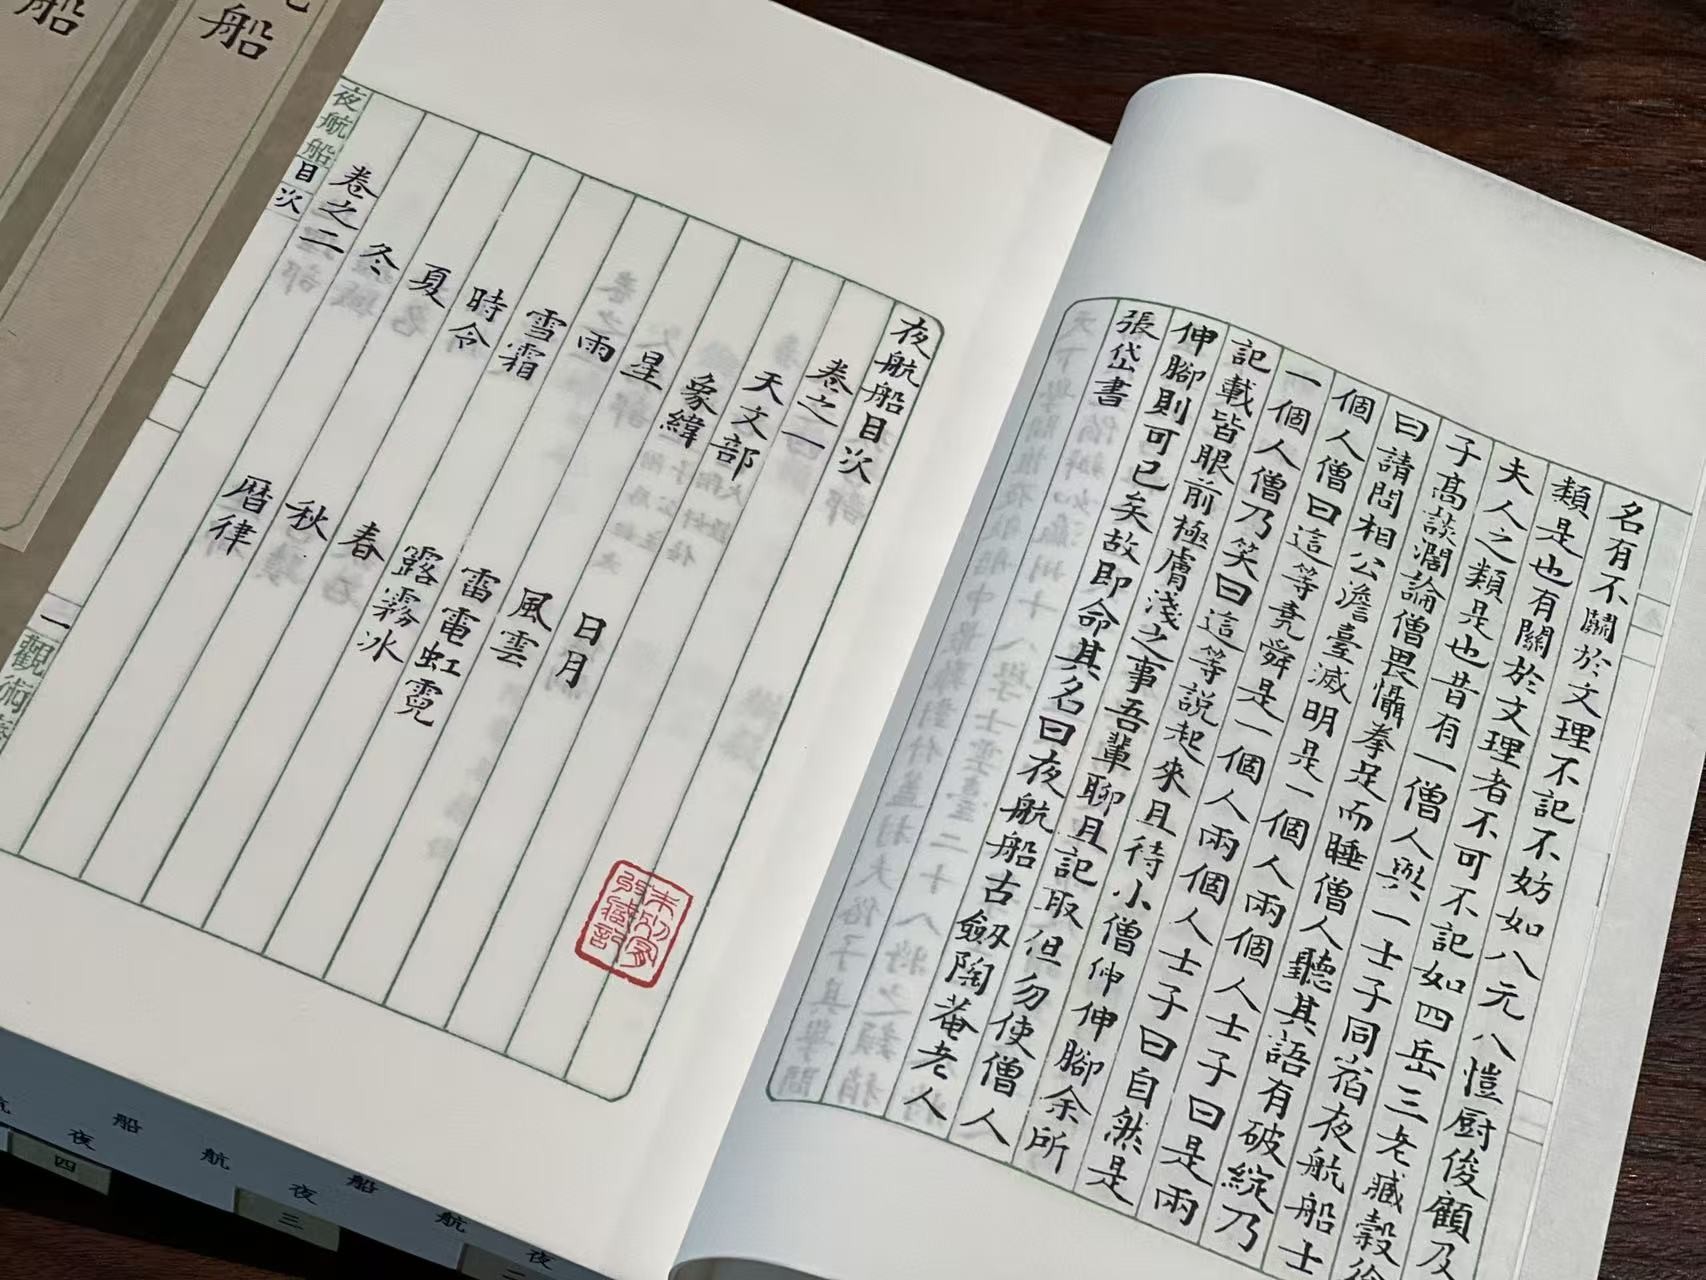 名有不關於文理不記不妨如八元八愷厨俊顧及
類是也有關於文理者不可不記如四岳三老臧穀徐
夫人之類是也昔有一僧人與一士子同宿夜航船士
子高談濶論僧畏懾拳足而睡僧人聽其語有破綻乃
曰請問相公澹臺滅明是一個人兩個人士子曰是兩
個人僧曰這等堯舜是一個人兩個人士子曰自然是
一個人僧乃笑曰這等說起來且待小僧伸伸腳余所
記載皆眼前極膚淺之事吾輩聊且記取但勿使僧人
伸腳則可已矣故即命其名曰夜航船古劔陶菴老人
張岱書
夜航船目次
卷之一
天文部
象緯
日月
星
風雲
雨
雷電虹霓
雪霜
露霧冰
時令
春
夏
秋
冬
曆律
卷之二
夜航船
目次
一
觀術
船
船
船
航
夜
四
船
航
夜
三
航
夜
二